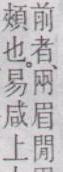 前者、兩眉閒
頰也。易咸上